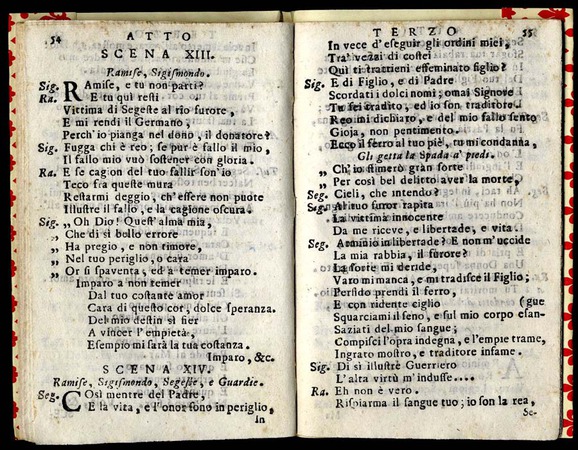 54 ATTO
SCENA XIII.
Ramise, Sigismondo.
Sig. Ramise, e tu non parti?
Ra. E tu qui resti
Vittima di Segeste al rio furore,
E mi rendi il Germano,
Perch'io pianga nel dono, il donatore?
Sig. Fugga chi è reo; se pur è fallo il mio,
Il fallo mio vuò sostener con gloria.
Ra. E se cagion del tuo fallir son'io
Teco fra queste mura
Restarmi deggio, ch'essere non puote
Illustre il fallo, e la cagione oscura.
Sig. „ Oh Dio! Quest'alma mia,
„ Che di sì bello errore
„ Ha pregio, e non timore,
„ Nel tuo periglio, o cara
„ Or si spaventa, ed a temer imparo.
Imparo a non temer
Dal tuo costante amor
Cara di questo cor, dolce speranza.
Del mio destin sì fier
A vincer l'empietà,
Esempio mi sarà la tua costanza.
Imparo, &c.
SCENA XIV.
Ramise, Sigismondo, Segeste, e Guardie.
Seg. Così mentre del Padre,
E la vita, e l'onor sono in periglio,
In
TERZO 55
In vece d'eseguir gli ordini miei,
Tra' vezzi di costei
Quì ti trattieni effeminato figlio?
Sig. E di Figlio, e di Padre
Scordati i dolci nomi; omai Signore
Tu sei tradito, ed io son traditore.
Reo mi dichiaro, e del mio fallo sento
Gioja, non pentimento.
Ecco il ferro al tuo piè, tu mi condanna,
Gli getta la Spada a' piedi.
„ Ch'io stimerò gran sorte
„ Per così bel delitto aver la morte,
Seg. Cieli, che intendo?
Sig. Al tuo furor rapita
La vittima innocente
Da me riceve, e libertade, e vita.
Seg. Arminio in libertade? E non m'uccide
La mia rabbia, il furore?
La sorte mi deride,
Varo mi manca, e mi tradisce il Figlio;
Perfido prendi il ferro,
E con ridente ciglio (gue
Squarciami il seno, e sul mio corpo esan-
Saziati del mio sangue;
Compisci l'opra indegna, e l'empie trame,
Ingrato mostro, e traditore infame.
Sig. Di sì illustre Guerriero
L'alta virtù m'indusse....
Ra. Eh non è vero.
Risparma il sangue tuo; io son la rea,
Se-